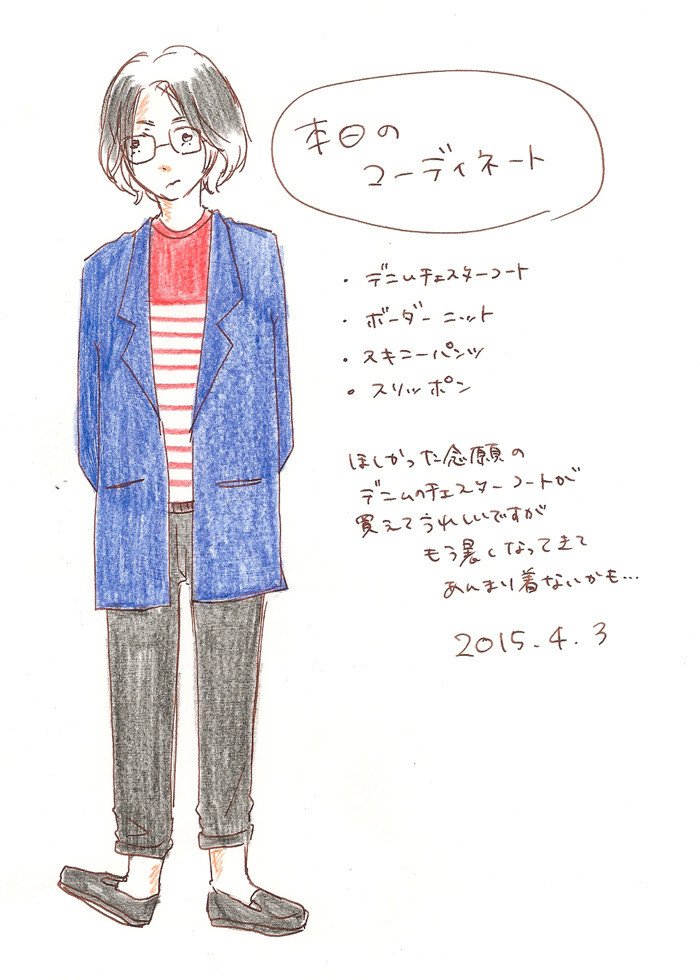 本日の
コーディネート
・デニムチェスターコート
・ボーダーニット
・スキニーパンツ
・スリッポン
ほしかった念願の
デニムのチェスターコートが
買えてうれしいですが
もう暑くなってきて
あんまり着ないかも…
2015.4.3